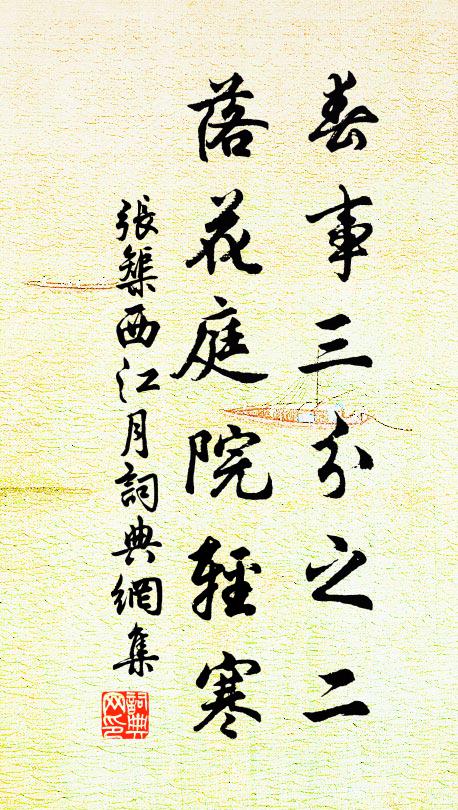 春事三分之二
落花庭院輕寒
張榘西江月詞典網集
詞典网印